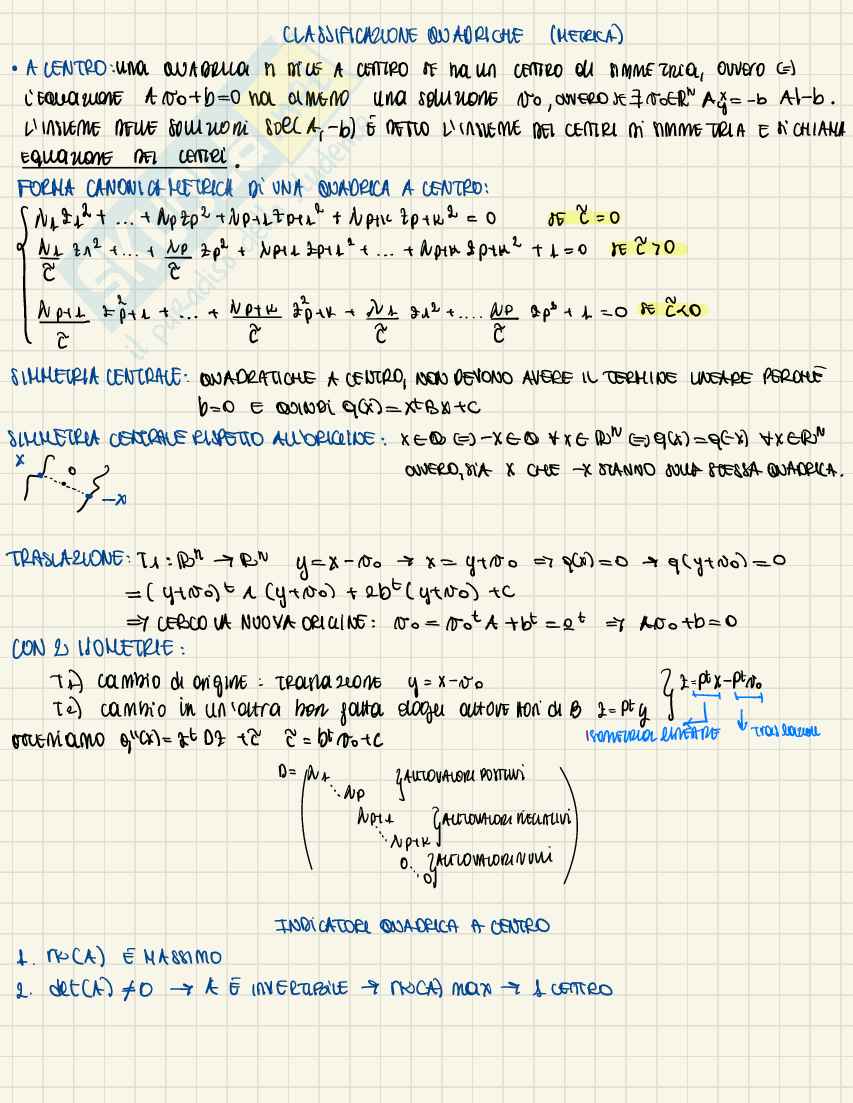 CLASSIFICAZIONE QUADRICHE (METRICA)
• A CENTRO: una QUADRICA si DICE A CENTRO SE ha UN CENTRO di SIMMETRIA, OVVERO (=)
l'EQUAZIONE A v₀+b=0 ha almeno una soluzione v₀, OVVERO SE ∃ v₀∈ℝᴺ A = -b A|-b.
L'INSIEME DELLE SOLUZIONI Sol(A,-b) È DETTO L'INSIEME DEI CENTRI DI SIMMETRIA E SI CHIAMA
EQUAZIONE DEI CENTRI.
FORMA CANONICA METRICA DI UNA QUADRICA A CENTRO:
λ₁z₁² + ... + λp zp² + λp+1 zp+1² + λp+k zp+k² = 0 SE c̃ = 0
λ₁/c̃ z₁² + ... + λp/c̃ zp² + λp+1 zp+1² + ... + λp+k zp+k² + 1 = 0 SE c̃ > 0
λp+1/c̃ z²p+1 + ... + λp+k/c̃ z²p+k + λ₁/c̃ z₁² + .... λp/c̃ zp² + 1 = 0 SE c̃ < 0
SIMMETRIA CENTRALE: QUADRATICHE A CENTRO, NON DEVONO AVERE IL TERMINE LINEARE PERCHÉ
b=0 E QUINDI q(x) = xᵗBx+c
SIMMETRIA CENTRALE RISPETTO ALL'ORIGINE: x∈Q (=) -x∈Q ∀x∈ℝᴺ (=) q(x)=q(-x) ∀x∈ℝᴺ
OVVERO, SIA x CHE -x STANNO SULLA STESSA QUADRICA.
x 0 -x
TRASLAZIONE: T₁: ℝⁿ → ℝᴺ y = x - v₀ → x = y+v₀ ⇒ q(x)=0 → q(y+v₀)=0
= (y+v₀)ᵗ A (y+v₀) + 2bᵗ(y+v₀) + c
⇒ CERCO LA NUOVA ORIGINE: v₀ = v₀ᵗA + bᵗ = 2ᵗ ⇒ Av₀+b=0
CON 2 ISOMETRIE:
T1) cambio di origine: TRASLAZIONE y = x-v₀
T2) cambio in un'altra bon fatta dagli autovettori di B z = Pᵗy } z = Pᵗx - Pᵗv₀
ISOMETRIA LINEARE TRASLAZIONE
OTTENIAMO q''(x) = zᵗDz + c̃ c̃ = bᵗv₀+c
D = λ₁ ... λp } AUTOVALORI POSITIVI
λp+1 ... λp+k } AUTOVALORI NEGATIVI
0 ... 0 } AUTOVALORI NULLI
INDICATORI QUADRICA A CENTRO
1. rk(A) È MASSIMO
2. det(A) ≠ 0 → A È INVERTIBILE → rk(A) max → 1 CENTRO